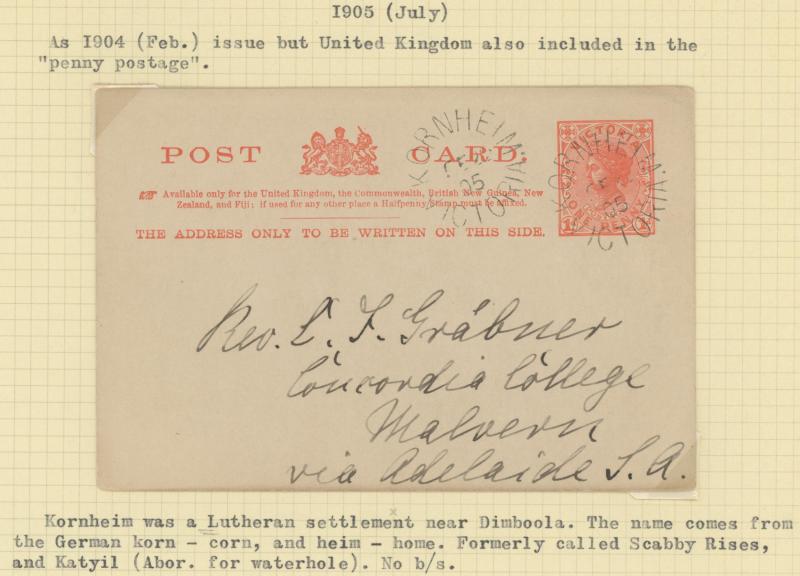 1905 (July)
As 1904 (Feb.) issue but United Kingdom also included in the
"penny postage".
POST CARD.
Available only for the United Kingdom, the Commonwealth, British New Guinea, New
Zealand, and Fiji; if used for any other place a Halfpenny Stamp must be affixed.
THE ADDRESS ONLY TO BE WRITTEN ON THIS SIDE.
KORNHEIM
05
VICTORIA
KORNHEIM
05
VICTORIA
VICTORIA
ONE PENNY
Rev. C. F. Gräbner
Concordia College
Malvern
via Adelaide S.A.
Kornheim was a Lutheran settlement near Dimboola. The name comes from
the German korn - corn, and heim - home. Formerly called Scabby Rises,
and Katyil (Abor. for waterhole). No b/s.